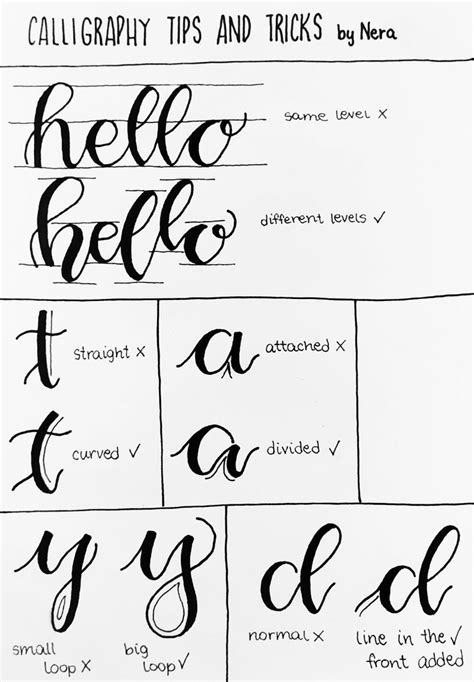 CALLIGRAPHY TIPS AND TRICKS by Nera
hello
same level x
hello
different levels ✓
t straight x
t curved ✓
a attached x
a divided ✓
y
small
loop x
y
big
loop ✓
d
normal x
d
line in the ✓
front added